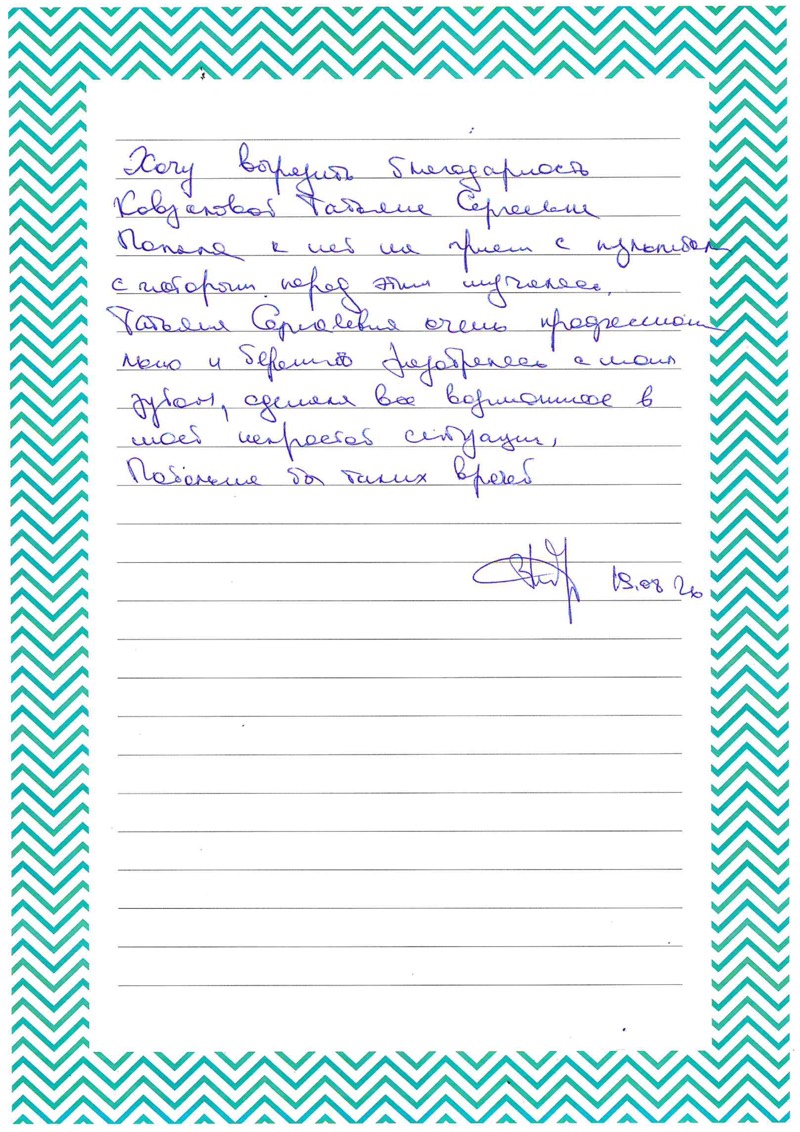 Хочу выразить благодарность
Ковзаловой Татьяне Сергеевне
Попала к ней на прием с пульпитом
с которым перед этим мучилась,
Татьяна Сергеевна очень профессиональ
льно и бережно разобралась с моим
зубом, сделала все возможное в
моей непростой ситуации,
Побольше бы таких врачей
19.08